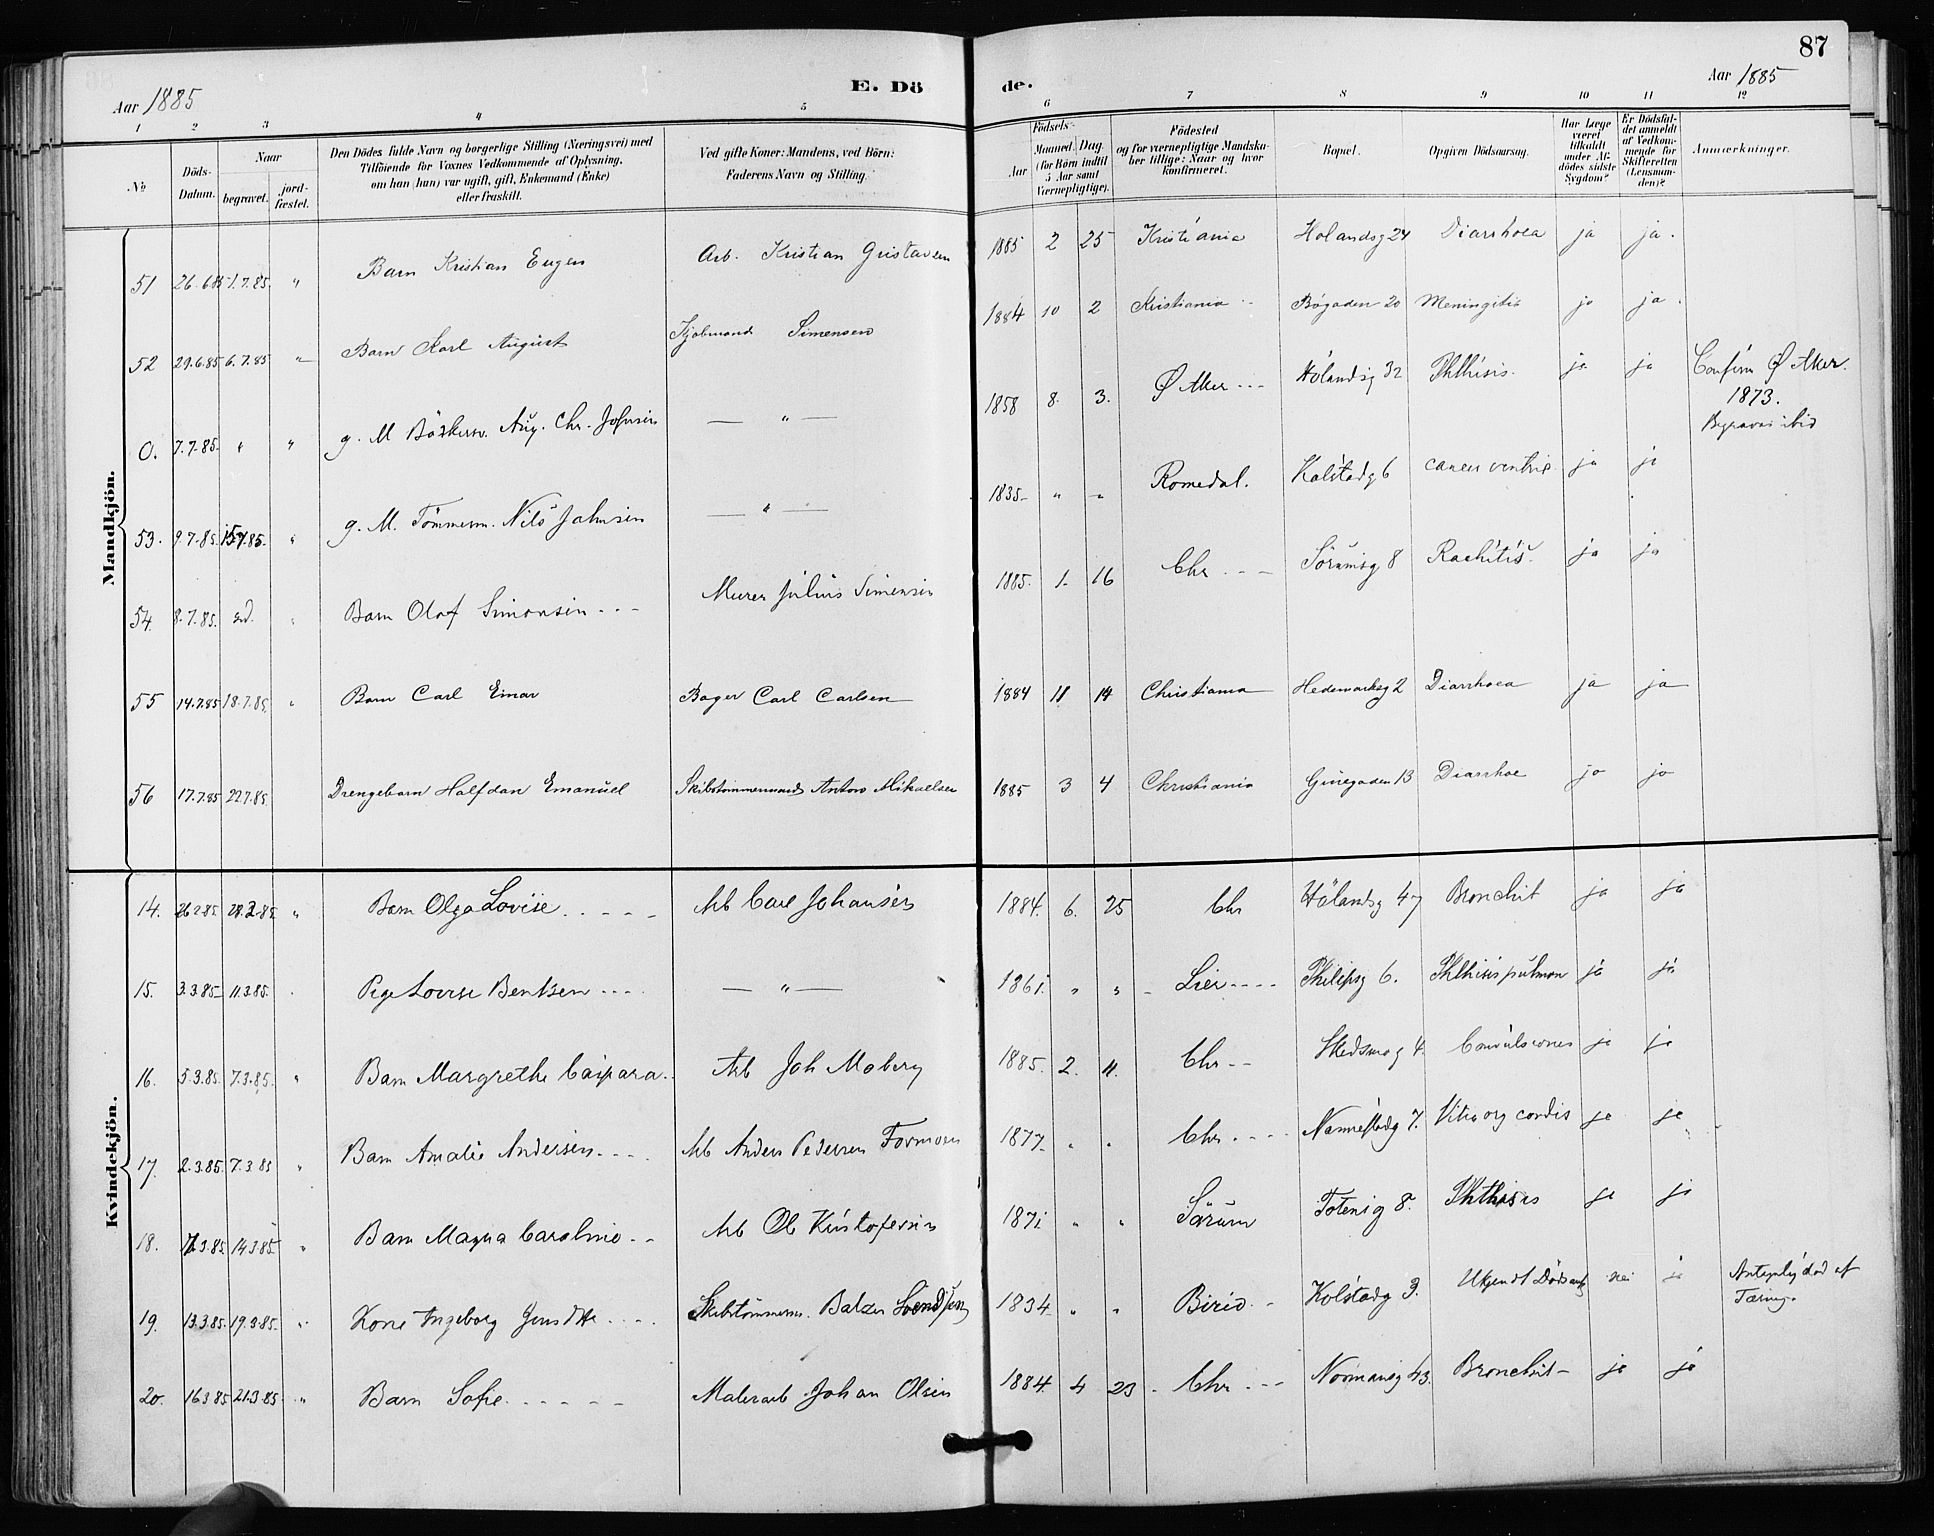 87
Aar 1885
E. Dö
de.
Aar 1885
1 2 3 4 5 6 7 8 9 10 11 12
No
Döds-Datum.
Naar
begravet.
jord-fæstet.
Den Dödes fulde Navn og borgerlige Stilling (Næringsvei) med
Tilföiende for Voxnes Vedkommende af Oplysning,
om han (hun) var ugift, gift, Enkemand (Enke)
eller fraskilt.
Ved gifte Koner: Mandens, ved Börn:
Faderens Navn og Stilling.
Födsels-
Aar
Maaned. Dag.
(for Börn indtil
5 Aar samt
Værnepligtige).
Födested
og for værnepligtige Mandska-
ber tillige: Naar og hvor
konfirmeret.
Bopæl.
Opgiven Dödsaarsag.
Har Læge
været
tilkaldt
under Af-
dödes sidste
Sygdom?
Er Dödsfal-
det anmeldt
af Vedkom-
mende for
Skifteretten
(Lensman-
den)?
Anmærkninger.
Mandkjön.
51 26.6.85 1.7.85. " Barn Kristian Eugen Arb. Kristian Gustavsen 1885 2 25 Kristiania Holandsg 24 Diarrhoea ja ja.
52 29.6.85 6.7.85 " Barn Karl August Simensen 1884 10 2 Kristiania Bögaden 20 Meningitis ja ja.
0. 7.7.85. " " g. M. Aug. Chr. Johnsen — " — 1858 8. 3. Ø Aker Hölandsg 32 Phthisis. ja ja Confirm Ø Aker.
1873.
Begravet ibid
53. 9.7.85. 15.7.85. " g. M. Tömmerm. Nils Johnsen — " — 1835 " " Romedal. Kolstadg 6 cancer ventric. ja ja
54. 8.7.85. " Barn Olaf Simonsen Murer Julius Simensen 1885. 1. 16 Chr Sörumsg 8 Rachitis. ja ja
55 14.7.85 18.7.85. " Barn Carl Einar Bager Carl Carlsen 1884 11 14 Christiania Hedemarksg 2 Diarrhoea ja ja
56 17.7.85 22.7.85. Drengebarn Halfdan Emanuel Skibstømmermand Anton Mikaelsen 1885 3 4 Christiania 13 Diarrhoe ja ja
Kvindekjön.
14. 26.2.85. " Barn Olga Lovise Arb Carl Johansen 1884. 6. 25 Chr Hölandsg 47 Bronchit ja ja
15. 3.3.85 11.3.85. Pige Lovise Bentsen — " — 1861. " " Lier Philipsg 6. Phthisis pulmon ja ja
16. 5.3.85. 7.3.85. " Barn Margrethe Caspara Arb Joh Moberg 1885. 2. 11. Chr Skedsmog 4. Convulsiones ja ja
17. 2.3.85. 7.3.85 " Barn Amalie Andersen Arb Anders Pedersen Formoen 1877. " " Chr Nannestadg 7. Vitia org cordis ja ja
18. 14.3.85 " Barn Magna Caroline Arb Ole Kristofersen 1871 " " Sörum Totensg 8. Phthisis ja ja
19. 13.3.85. 19.3.85. " Kone Ingeborg Skibstömmerm. Balzer Svendsen 1834 " " Birid Kolstadg 3. Ukjendt Dödsaars nei ja Antagelig död af
Tæring.
20. 16.3.85 21.3.85 " Barn Sofie Malerarb Johan Olsen 1884. 4 23 Chr Normansg 43. Bronchit ja ja